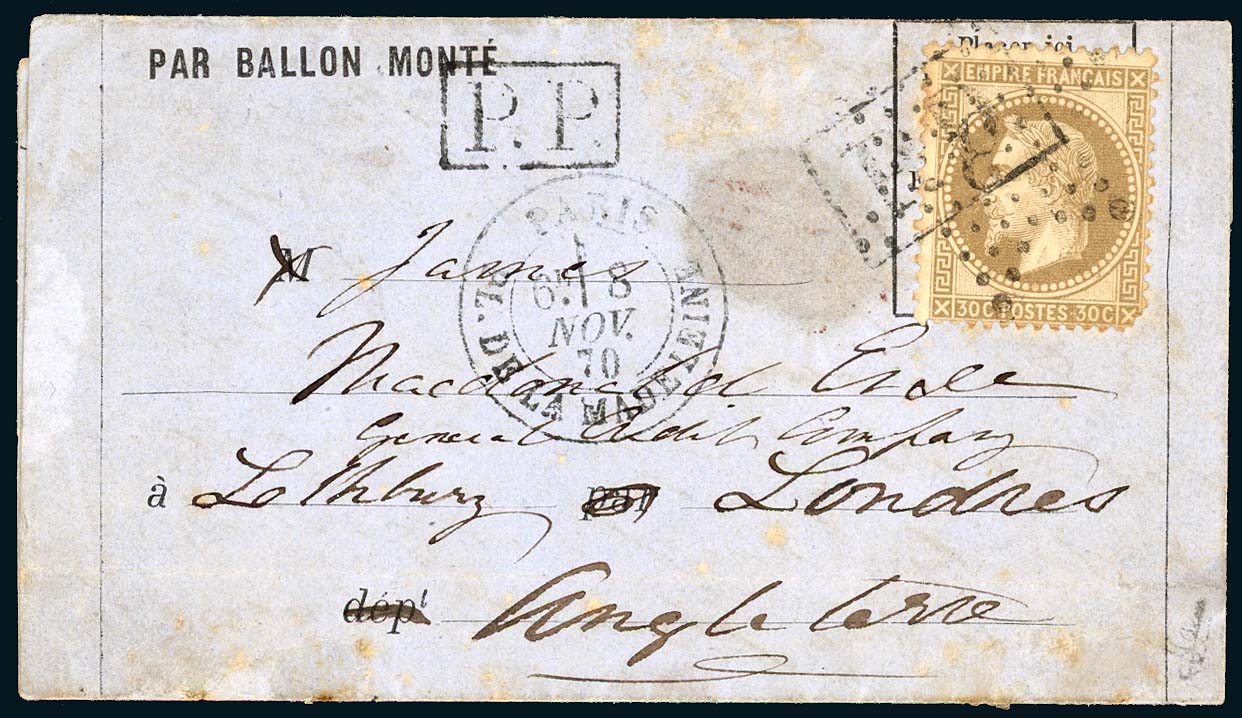 PAR BALLON MONTÉ
P.P.
Placer ici
EMPIRE FRANÇAIS
30C POSTES 30C
PARIS
8
NOV.
70
PL. DE LA MADELEINE
M James
Macdonald Esqe
General Credit Company
à Lothbury par Londres
dépt Angleterre